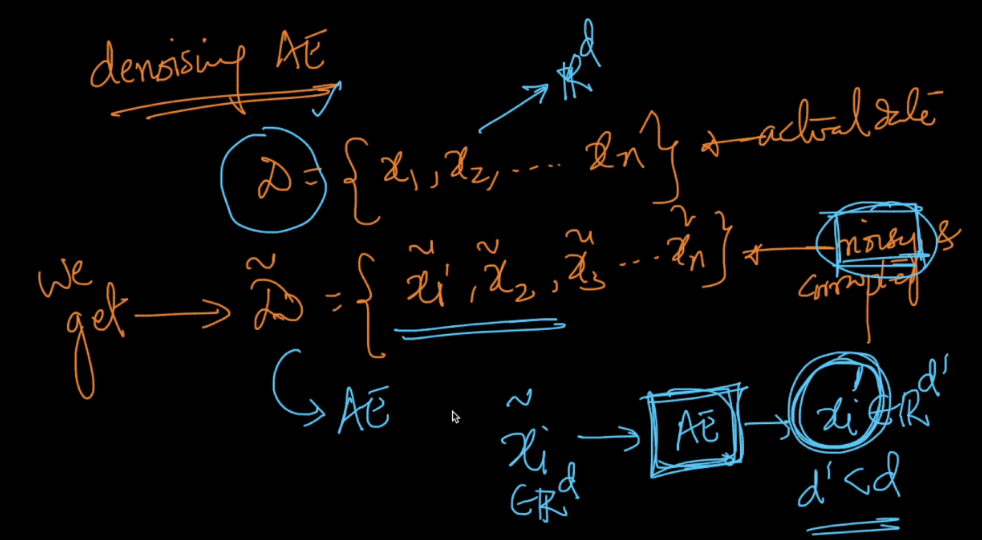 denoising AE
ℝ^d
D = {x₁, x₂, .... xₙ} ← actual data
We get → D̃ = {x̃₁', x̃₂, x̃₃ ... x̃ₙ} ← noisy & corrupted
→ AE
x̃ᵢ → AE → xᵢ' ∈ ℝ^d'
∈ ℝ^d
d' < d